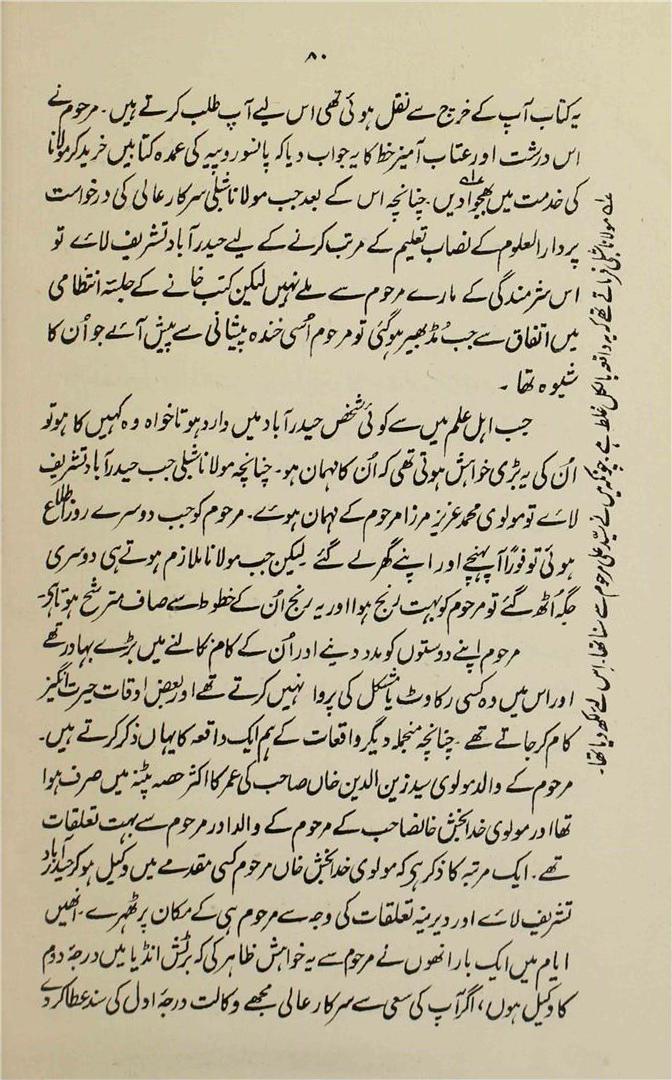 ۸۰
یہ کتاب آپ کے خرج سے نقل ہوئی تھی اس لیے آپ طلب کرتے ہیں۔ مرحوم نے
اس درشت اور عتاب آمیز خط کا یہ جواب دیا کہ پانسو روپیہ کی عمدہ کتابیں خرید کر مولانا
کی خدمت میں بھجوا دیں۔ چنانچہ اس کے بعد جب مولانا شبلی سرکار عالی کی درخواست
پر دار العلوم کے نصاب تعلیم کے مرتب کرنے کے لیے حیدرآباد تشریف لائے تو
اس شرمندگی کے مارے مرحوم سے ملے نہیں لیکن کتب خانے کے جلسۂ انتظامی
میں اتفاق سے جب مُڈبھیر ہوگئی تو مرحوم اُسی خندہ پیشانی سے پیش آئے جو اُن کا
شیوہ تھا ۔
جب اہل علم میں سے کوئی شخص حیدرآباد میں وارد ہوتا خواہ وہ کہیں کا ہو تو
اُن کی یہ بڑی خواہش ہوتی تھی کہ اُن کا مہمان ہو۔ چنانچہ مولانا شبلی جب حیدرآباد تشریف
لائے تو مولوی محمد عزیز مرزا مرحوم کے مہمان ہوئے۔ مرحوم کو جب دوسرے روز اطلاع
ہوئی تو فوراً آپہنچے اور اپنے گھر لے گئے لیکن جب مولانا ملازم ہوتے ہی دوسری
جگہ اُٹھ گئے تو مرحوم کو بہت رنج ہوا اور یہ رنج اُن کے خطوط سے صاف مترشح ہوتا ہی۔
مرحوم اپنے دوستوں کو مدد دینے اور اُن کے کام نکالنے میں بڑے بہادر تھے
اور اس میں وہ کسی رکاوٹ یا شکل کی پروا نہیں کرتے تھے اور بعض اوقات حیرت انگیز
کام کر جاتے تھے ۔ چنانچہ منجملہ دیگر واقعات کے ہم ایک واقعہ کا یہاں ذکر کرتے ہیں۔
مرحوم کے والد مولوی سید زین الدین خاں صاحب کی عمر کا اکثر حصہ پٹنہ میں صرف ہوا
تھا اور مولوی خدا بخش خانصاحب کے مرحوم کے والد اور مرحوم سے بہت تعلقات
تھے۔ ایک مرتبہ کا ذکر ہی کہ مولوی خدا بخش خاں مرحوم کسی مقدمے میں وکیل ہو کر حیدرآباد
تشریف لائے اور دیرینہ تعلقات کی وجہ سے مرحوم ہی کے مکان پر ٹھہرے۔ انھیں
ایام میں ایک بار انھوں نے مرحوم سے یہ خواہش ظاہر کی کہ برٹش انڈیا میں درجۂ دوم
کا وکیل ہوں، اگر آپ کی سعی سے سرکار عالی مجھے وکالت درجۂ اول کی سند عطا کر دے
لہ مولانا شبلی فرماتے تھے کہ یہ واقعہ بالکل غلط ہے چونکہ میں نے سید علی مرحوم سے سنا تھا اس لیے لکھ دیا تھا۔